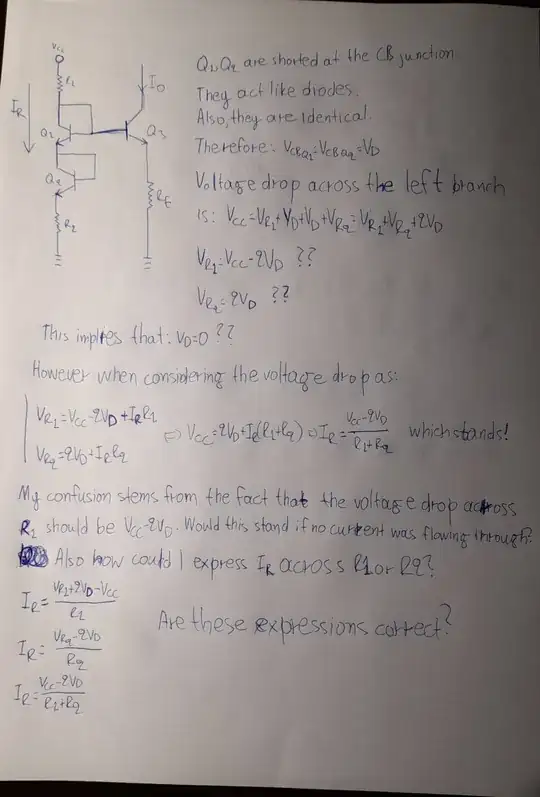 Vcc
R1
IR
Io
Q1
Q3
Q2
RE
R2
Q1,Q2 are shorted at the CB junction
They act like diodes.
Also, they are identical.
Therefore: VCBQ1=VCBQ2=VD
Voltage drop across the left branch
is: Vcc=VR1+VD+VD+VR2=VR1+VR2+2VD
VR1=Vcc-2VD ??
VR2=2VD ??
This implies that: VD=0 ??
However when considering the voltage drop as:
VR1=Vcc-2VD+IRR1
VR2=2VD+IRR2
⇒ Vcc=2VD+IR(R1+R2) ⇒ IR=Vcc-2VD/R1+R2 which stands!
My confusion stems from the fact that the voltage drop across
R1 should be Vcc-2VD. Would this stand if no current was flowing through?
Also how could I express IR across R1 or R2?
IR=VR1+2VD-Vcc/R1
IR=VR2-2VD/R2
IR=Vcc-2VD/R1+R2
Are these expressions correct?